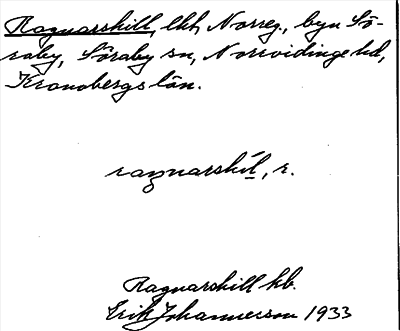 Ragnarskill, lht Norreg., byn Sö-
raby, Söraby sn, Norrvidinge hd,
Kronobergs län.
ragnarskil, r.
Ragnarskill kb.
Erik Johannesson 1933